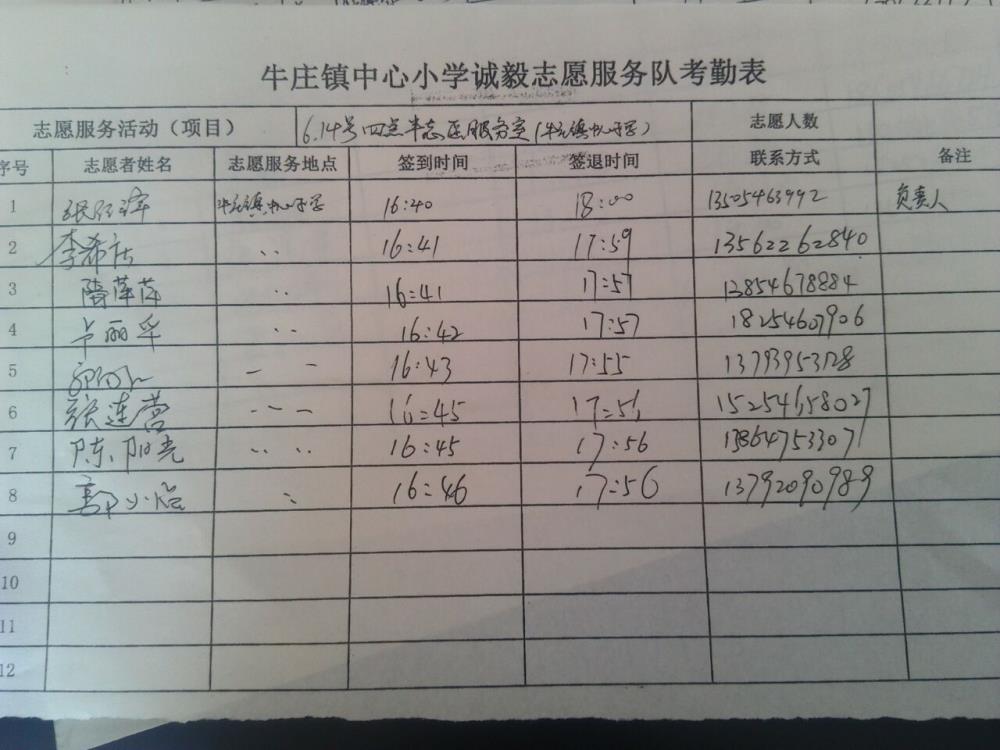 牛庄镇中心小学诚毅志愿服务队考勤表
志愿服务活动（项目） 6.14号四点半志愿服务室（牛庄镇中心小学） 志愿人数
序号 志愿者姓名 志愿服务地点 签到时间 签退时间 联系方式 备注
1 牛庄镇中心小学 16:40 18:00 13505463992 负责人
2 李希店 16:41 17:59 13562262840
3 隋萍萍 16:41 17:57 13854678884
4 卢丽采 16:42 17:57 18254607906
5 16:43 17:55
6 张连营 16:45 17:56 15254658027
7 陈阳光 16:45 17:56 13864753307
8 16:46 17:56 13792090989
9
10
11
12